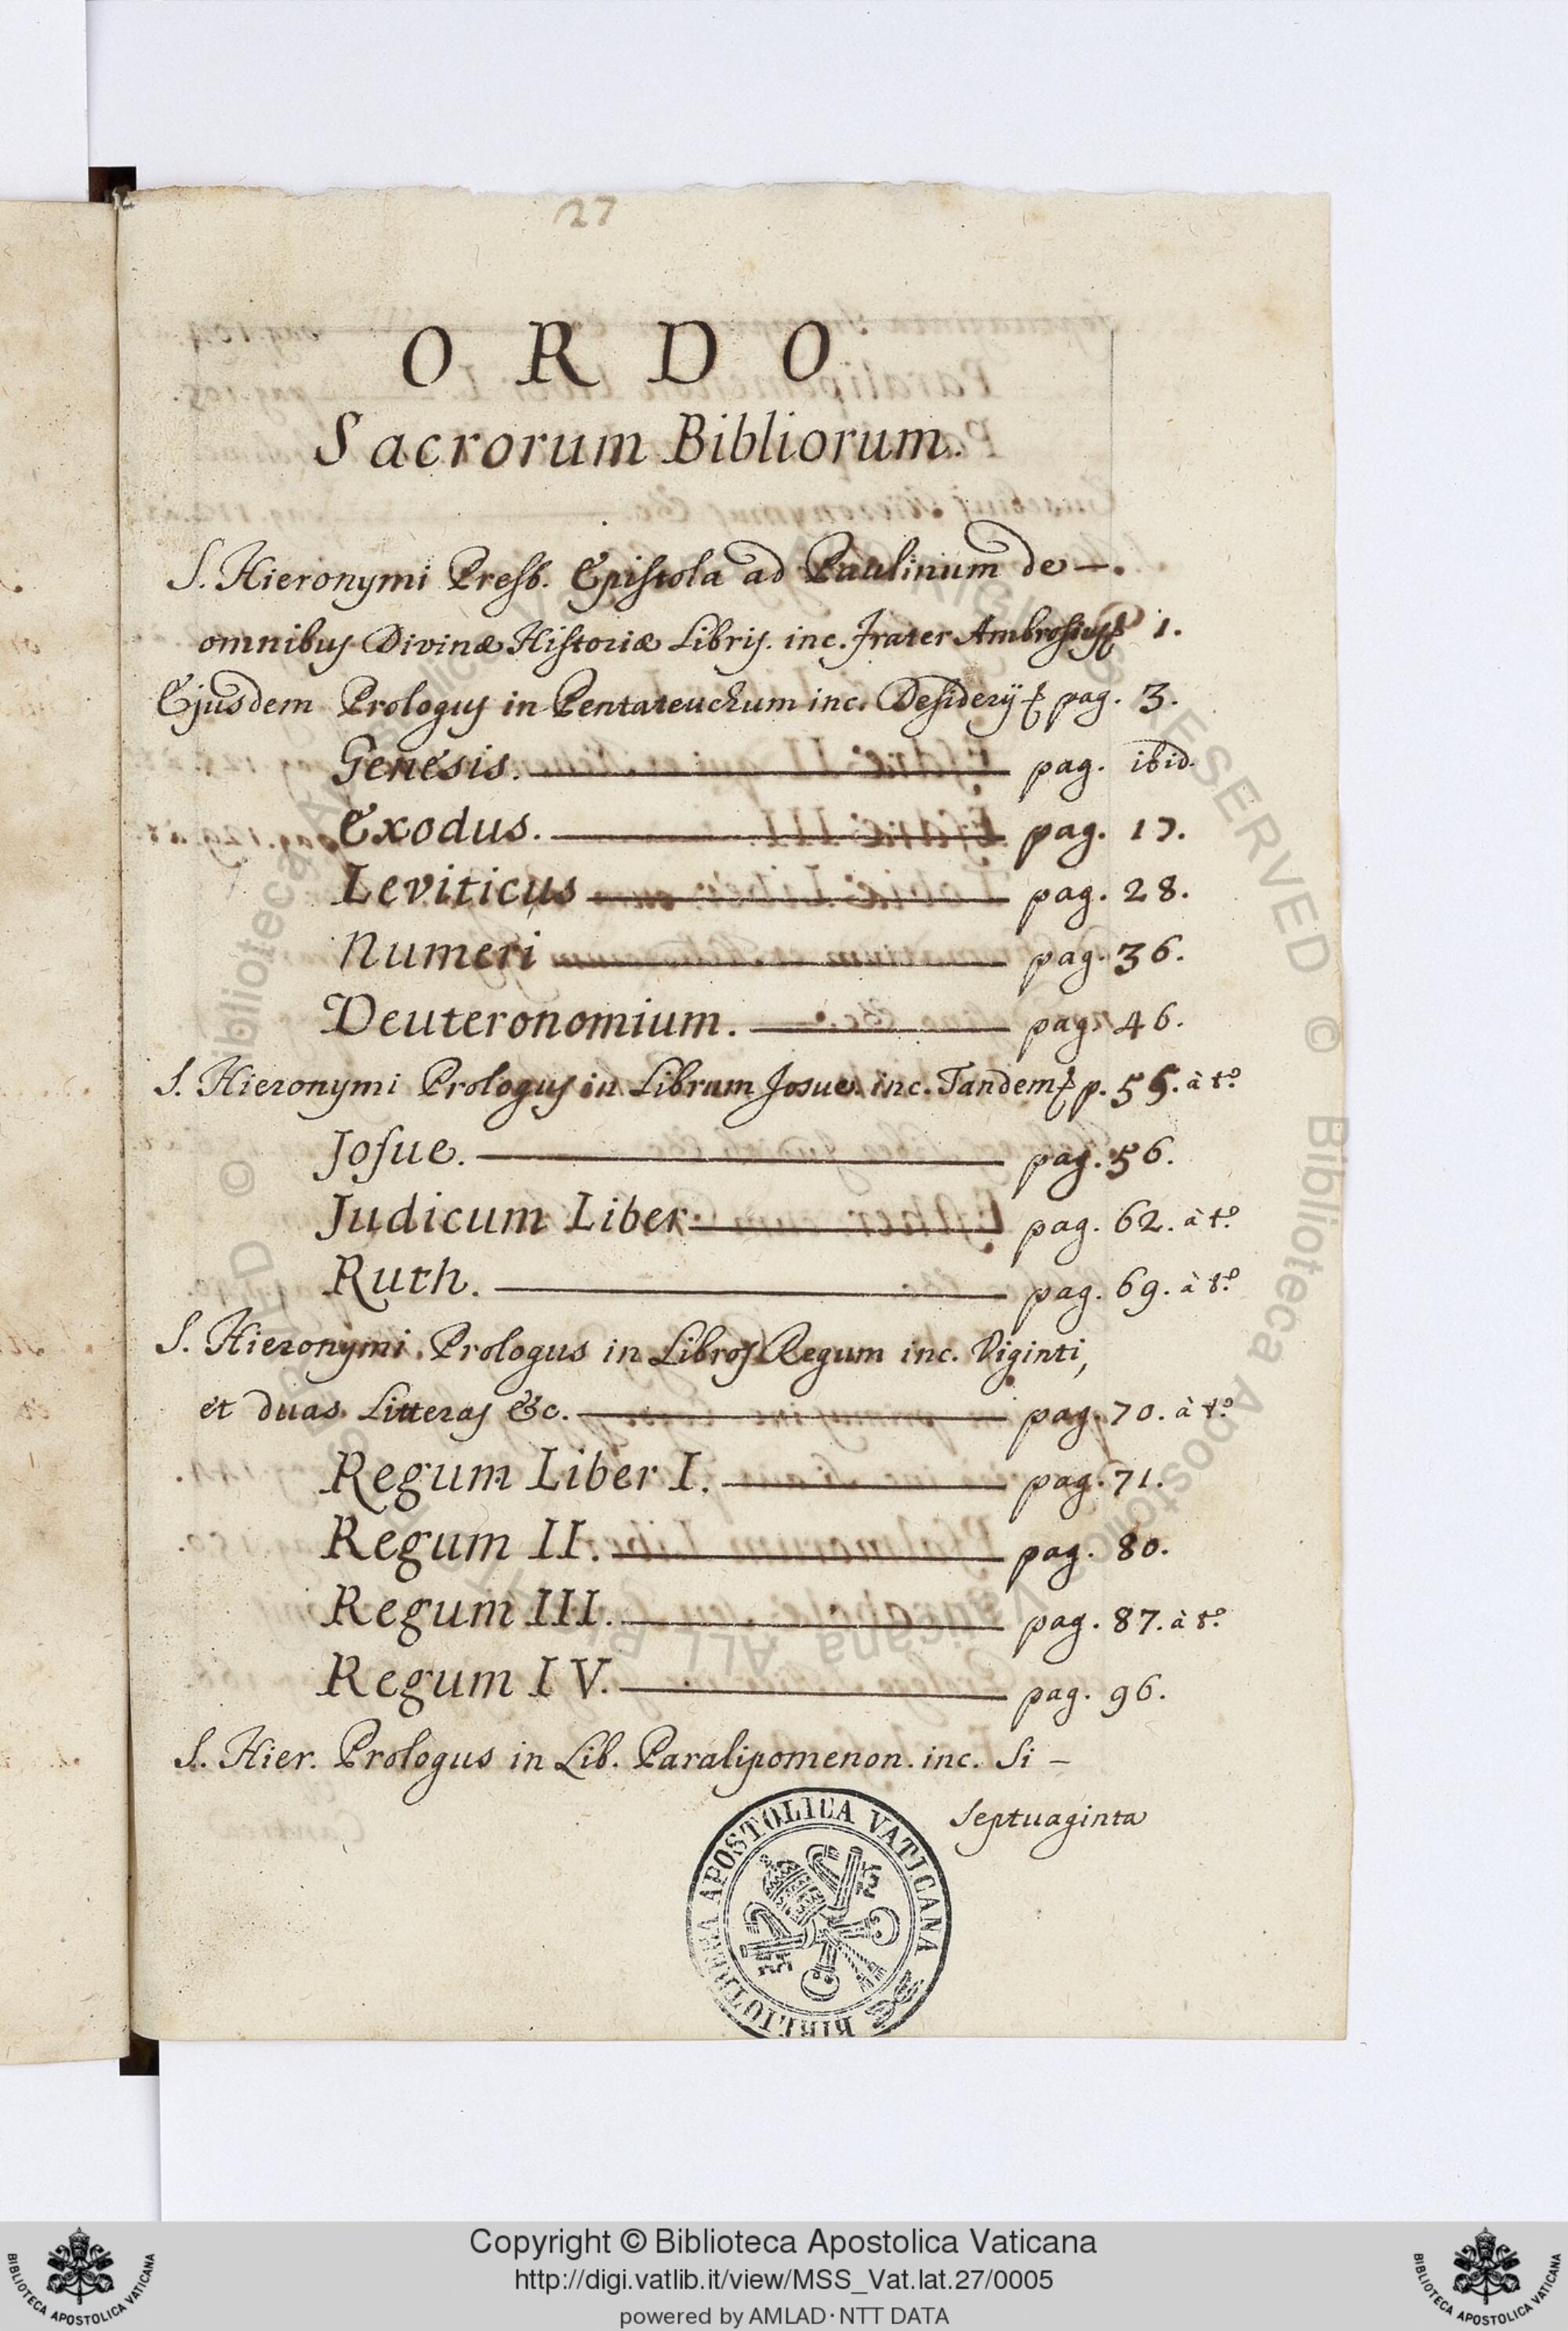 27
O R D O
Sacrorum Bibliorum.
S. Hieronymi Presb. Epistola ad Paulinum de —.
omnibus Divinæ Historiæ Libris. inc. Frater Ambrosius p 1.
Ejusdem Prologus in Pentateuchum inc. Desiderij p pag. 3.
Genesis. — pag. ibid.
Exodus. — pag. 17.
Leviticus — pag. 28.
Numeri — pag. 36.
Deuteronomium. — pag. 46.
S. Hieronymi Prologus in Librum Josue. inc. Tandem p. 55. à tº
Josue. — pag. 56.
Judicum Liber — pag. 62. à tº
Ruth. — pag. 69. à tº
S. Hieronymi Prologus in Libros Regum inc. Viginti,
et duas Litteras &c. — pag. 70. à tº
Regum Liber I. — pag. 71.
Regum II. — pag. 80.
Regum III. — pag. 87. à tº
Regum IV. — pag. 96.
S. Hier. Prologus in Lib. Paralipomenon. inc. Si —
Septuaginta
BIBLIOTHECA APOSTOLICA VATICANA
Copyright © Biblioteca Apostolica Vaticana
http://digi.vatlib.it/view/MSS_Vat.lat.27/0005
powered by AMLAD · NTT DATA
BIBLIOTECA APOSTOLICA VATICANA
BIBLIOTECA APOSTOLICA VATICANA